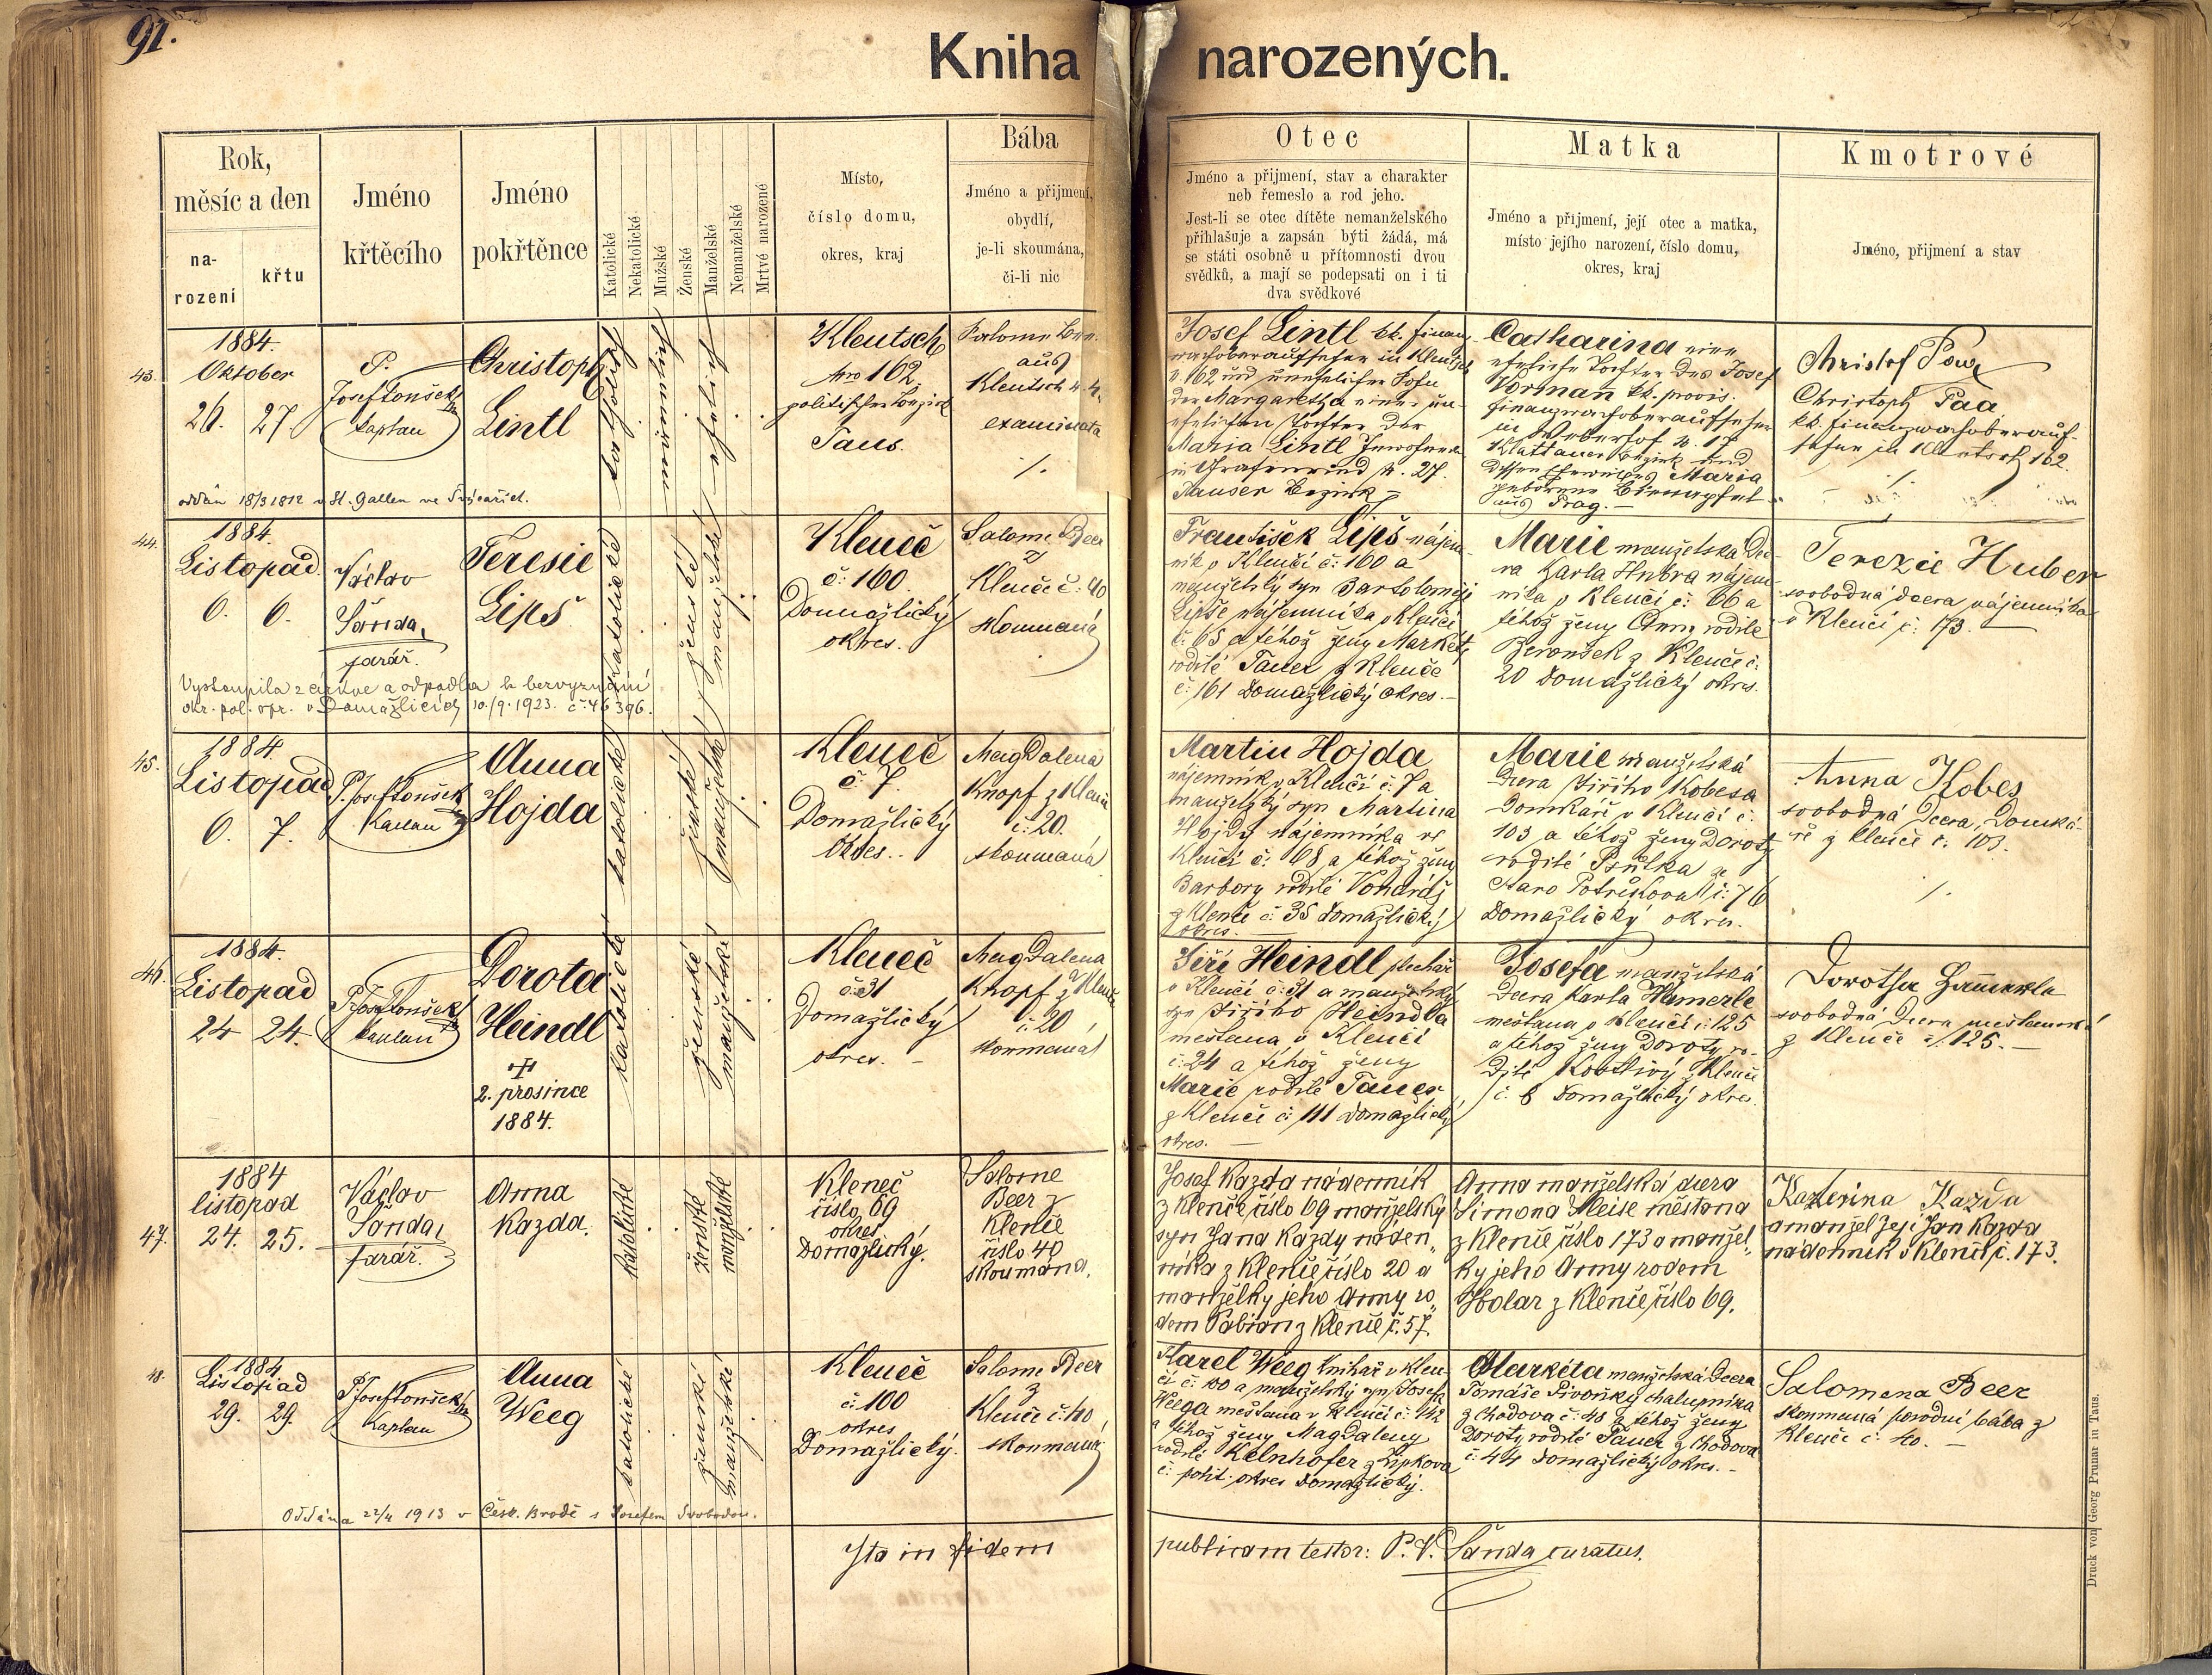 91.
Kniha narozených.
Rok,
měsíc a den
na-
rození
křtu
Jméno
křtěcího
Jméno
pokřtěnce
Katolické
Nekatolické
Mužské
Ženské
Manželské
Nemanželské
Mrtvé narozené
Místo,
číslo domu,
okres, kraj
Bába
Jméno a přijmení,
obydlí,
je-li skoumána,
či-li nic
Otec
Jméno a přijmení, stav a charakter
neb řemeslo a rod jeho.
Jest-li se otec dítěte nemanželského
přihlašuje a zapsán býti žádá, má
se státi osobně u přítomnosti dvou
svědků, a mají se podepsati on i ti
dva svědkové
Matka
Jméno a přijmení, její otec a matka,
místo jejího narození, číslo domu,
okres, kraj
Kmotrové
Jméno, přijmení a stav
43.
1884.
Oktober
26. 27.
P.
Josef Tonšek
Kaplan
Christoph
Lintl
katholisch
männlich
ehelich
Kleutsch
Nro 162
politischer Bezirk
Taus.
Salome Beer
aus
Kleutsch N. 40
examinata
Josef Lintl kk. Finanz-
wachoberaufseher in Kleutsch
N. 162 und unehelicher Sohn
der Margaretha einer un-
ehelichen Tochter der
Maria Lintl Inwohnerin
in Grafenried N. 27.
Tauser Bezirk
Catharina eine
eheliche Tochter des Josef
kk. provis.
Finanzwachoberaufseher
in N. 17
Klattauer Bezirk und
dessen Eheweibes Maria
geborene
aus Prag.
Christof Paa
Christoph Paa
kk. Finanzwachoberauf-
seher in Kleutsch 162.
oddán 18/3 1812 v St. Gallen ve Švýcařích.
44.
1884.
Listopad
6. 6.
Václav
Šanda,
farář.
Teresie
Lipš
katolické
ženské
manželské
Kleneč
č: 160.
Domažlický
okres.
Salome Beer
z
Klenče č: 40
skoumaná
František Lipš nájem-
ník v Klenčí č: 160 a
manželský syn Bartoloměje
Lipše nájemníka v Klenčí
č: 65 a téhož ženy Markéty
rodilé Tauer z Klenče
č: 161 Domažlický okres.
Marie manželská dce-
ra Karla Hubra nájem-
níka v Klenčí č: 66 a
téhož ženy Anny rodilé
Beroušek z Klenče č:
20 Domažlický okres.
Terezie Huber
svobodná dcera nájemníka
v Klenčí č: 173.
Vystoupila z církve a odpadla k bezvyznání
okr. pol. spr. v Domažlicích 10./9. 1923. č. 46396.
45.
1884.
Listopad
6. 7.
P. Josef Tonšek
Kaplan
Anna
Hojda
katolické
ženské
manželské
Kleneč
č: 7.
Domažlický
Okres.
Magdalena
Knopf z Klenče
č: 20.
skoumaná
Martin Hojda
nájemník v Klenčí č: 7 a
manželský syn Martina
Hojdy nájemníka ve
Klenčí č: 68 a téhož ženy
Barbory rodilé Vondráš
z Klenče č: 35 Domažlický
okres.
Marie manželská
dcera Jiřího Kobesa
Domkáře v Klenčí č:
103 a téhož ženy Doroty
rodilé Psutka ze
Staro Postřekova č: 76
Domažlický okres.
Anna Kobes
svobodná dcera Domká-
ře z Klenče č: 103.
46.
1884.
Listopad
24 24.
P. Josef Tonšek
Kaplan
Dorota
Heindl
2. prosince
1884.
katolické
ženské
manželské
Kleneč
č: 31
Domažlický
okres.
Magdalena
Knopf z Klenče
č: 20
skoumaná
Jiří Heindl plechář
v Klenčí č: 31 a manželský
syn Jiřího Heindla
mešťana v Klenčí
č: 24 a téhož ženy
Marie rodilé Tauer
z Klenče č: 111 Domažlický
okres.
Josefa manželská
dcera Karla Hamerle
mešťana v Klenčí č: 125
a téhož ženy Doroty ro-
dilé Kostlivý z Klenče
č: 6 Domažlický okres.
Dorothea Hammerla
svobodná dcera mešťanská
z Klenče č: 125.
47.
1884
listopad
24. 25.
Václav
Šanda,
farář.
Anna
Kazda.
katolické
ženské
manželské
Kleneč
číslo 69
okres
Domažlický.
Salome
Beer z
Klenče
číslo 40
skoumána.
Josef Kazda nádenník
z Klenče číslo 69 manželský
syn Jana Kazdy náden„
níka z Klenče číslo 20 a
manželky jeho Anny ro„
dem Fabian z Klenče č. 57.
Anna manželská dcera
Šimona Kleise měšťana
z Klenče číslo 173 a manžel„
ky jeho Anny rodem
Stolar z Klenče číslo 69.
Kateřina Kazda
a manžel její Jan Kazda
nádenník v Klenčí č. 173.
48.
1884.
Listopad
29. 29.
P. Josef Tonšek
Kaplan
Anna
Weeg
katolické
ženské
manželské
Kleneč
č: 100
okres
Domažlický.
Salome Beer
z
Klenče č: 40
skoumaná
Karel Weeg knihař v Klen-
čí č: 100 a manželský syn Josefa
Weega mešťana v Klenčí č: 142
a téhož ženy Magdaleny
rodilé Kelnhofer z Lipkova
č: polit. okres Domažlický.
Markéta manželská dcera
Tomáše Pivoňky chalupníka
z Chodova č: 48 a téhož ženy
Doroty rodilé Tauer z Chodova
č: 44 Domažlický okres.
Salomena Beer
skoumaná porodní bába z
Klenče č: 40.
Oddána 22/4 1913 v Česk. Brodě s Josefem Svobodou.
Ita in fidem publicam testor: P. V. Šanda curatus.
Druck von Georg Prunar in Taus.